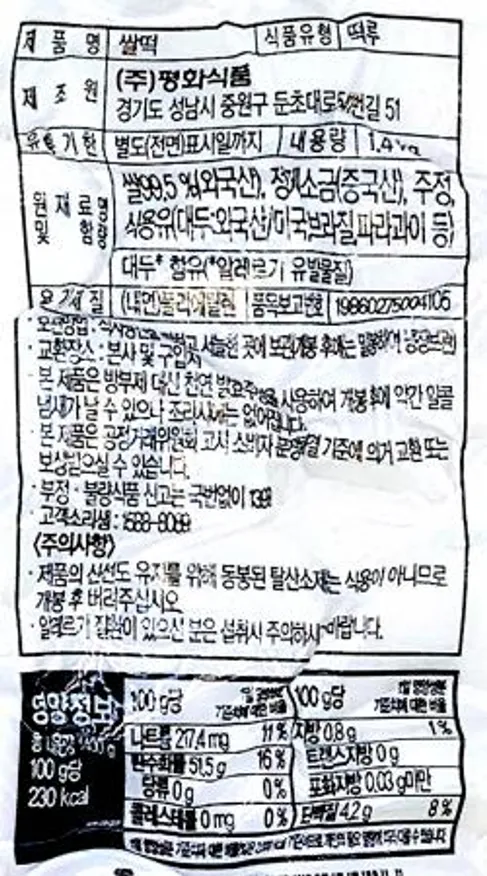 제 품 명 쌀떡 식품유형 떡류
제 조 원 (주)평화식품
경기도 성남시 중원구 둔촌대로 번길 51
유통기한 별도(전면)표시일까지 내용량 1.4kg
원재료명 및 함량 쌀99.5%(외국산), 정제소금(중국산), 주정,
식용유(대두:외국산/미국,브라질,파라과이 등)
대두* 함유(*알레르기 유발물질)
용기재질 (내면)폴리에틸렌 품목보고번호 19860275004106
서늘한 곳에 보관,개봉 후에는 밀봉하여 냉장보관
· 교환장소 : 본사 및 구입처
· 본 제품은 방부제 대신 천연 발효주정을 사용하여 개봉 후에 약간 알콜
냄새가 날 수 있으나 조리시에는 없어집니다.
· 본 제품은 공정거래위원회 고시 소비자 분쟁해결 기준에 의거 교환 또는
보상받으실 수 있습니다.
· 부정 · 불량식품 신고는 국번없이 1399
· 고객소리샘 : 1588-8089
〈주의사항〉
· 제품의 신선도 유지를 위해 동봉된 탈산소제는 식용이 아니므로
개봉 후 버려주십시오
· 알레르기 질환이 있으신 분은 섭취시 주의하시기 바랍니다.
영양정보 100 g당 1일 영양성분 기준치에 대한 비율 100 g당 1일 영양성분 기준치에 대한 비율
100 g당
230 kcal
나트륨 217.4 mg 11% 지방 0.8 g 1%
탄수화물 51.5 g 16% 트랜스지방 0 g
당류 0 g 0% 포화지방 0.03 g미만
콜레스테롤 0 mg 0% 단백질 4.2 g 8%